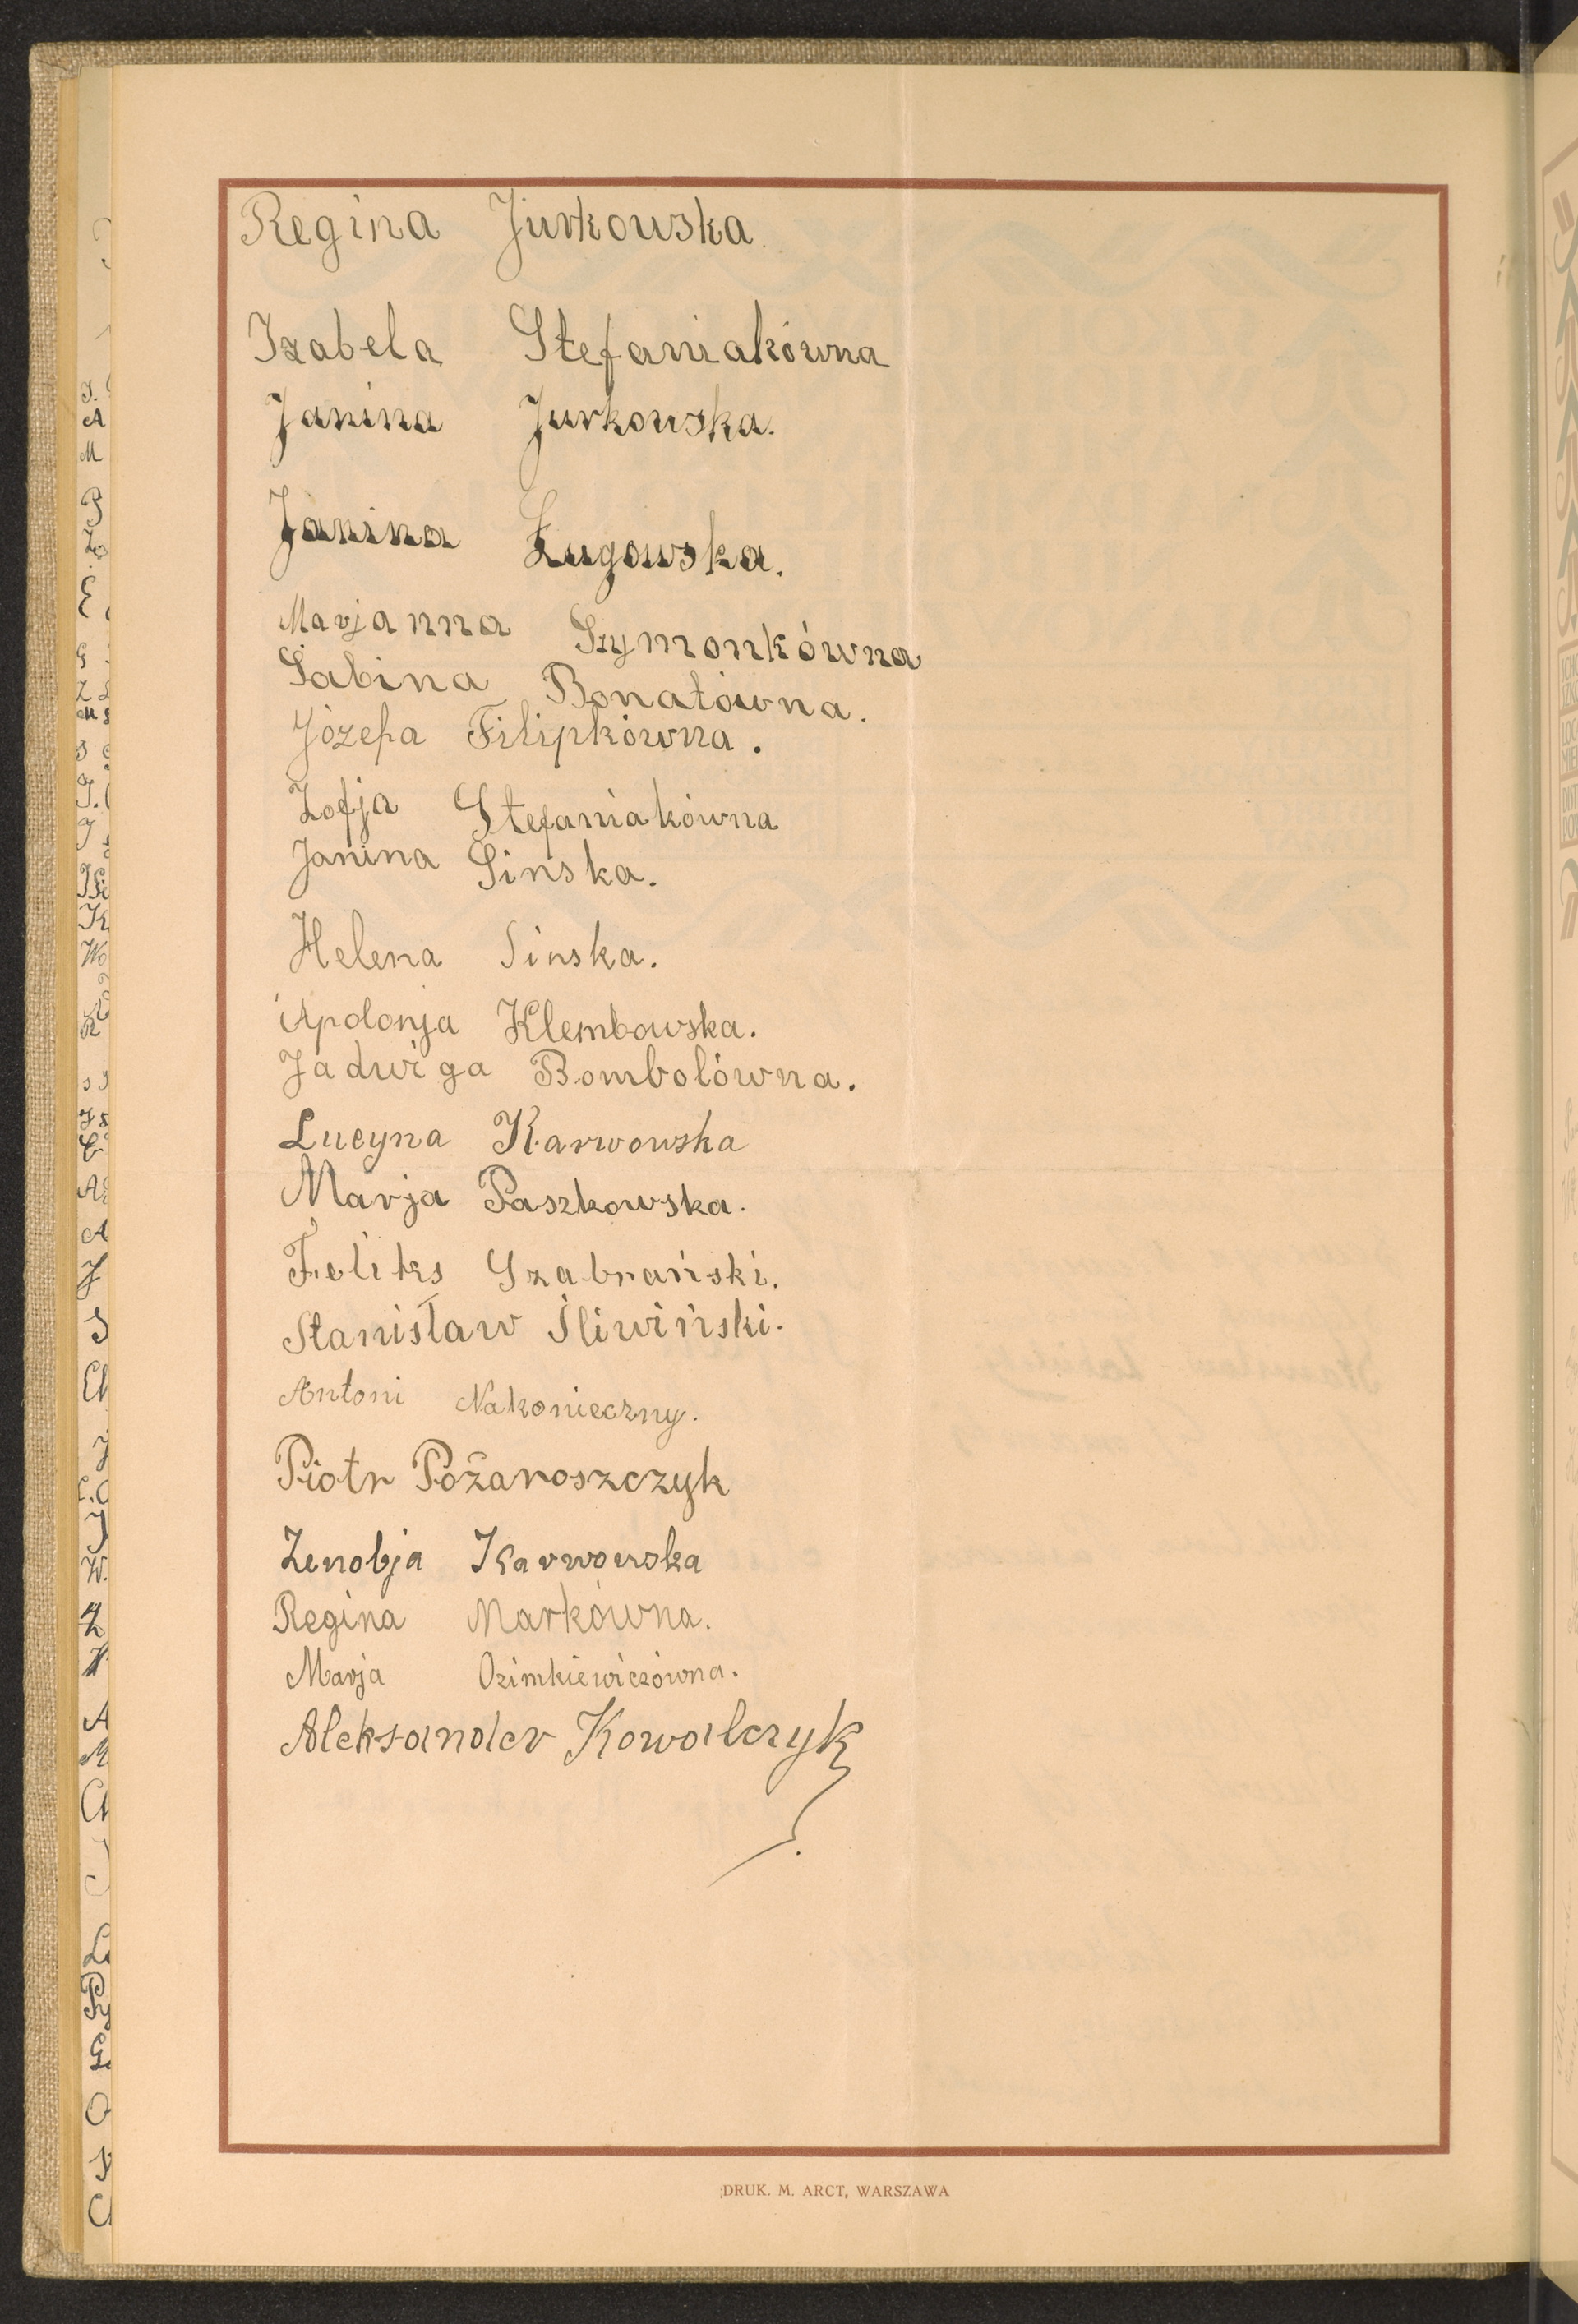 Regina Jurkowska.
Izabela Stefaniakówna
Janina Jurkowska.
Janina Ługowska.
Marjanna Szymonkówna
Sabina Bonatówna.
Józefa Filipkówna.
Zofja Stefaniakówna
Janina Sinska.
Helena Sinska.
Apolonja Klembowska.
Jadwiga Bombolówna.
Lucyna Karwowska
Marja Paszkowska.
Feliks Szabrański.
Stanisław Śliwiński.
Antoni Nakonieczny.
Piotr Pożaroszczyk
Zenobja Karwowska
Regina Markówna.
Marja Ozimkiewiczówna.
Aleksander Kowalczyk
DRUK. M. ARCT, WARSZAWA